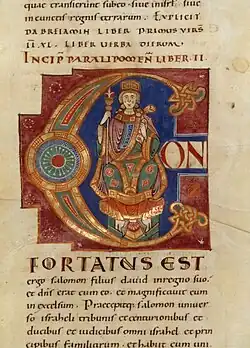 quae transierunt sub eo siue in isrl. siue
in cunctis regnis terrarum. EXPLICIT
DABREIAMIN LIBER PRIMUS
LIBER VERBA DIERUM
INCIP PARALIPOMEN LIBER II
CON
FORTATUS EST
ergo salomon filius dauid in regno suo.
et dns erat cum eo. et magnificauit eum
in excelsum. Praecepitq; salomon uniuer
so israheli tribunis et centurionibus et
ducibus et iudicibus omnis israhel. et prin
cipibus familiarum. et habiit cum uni